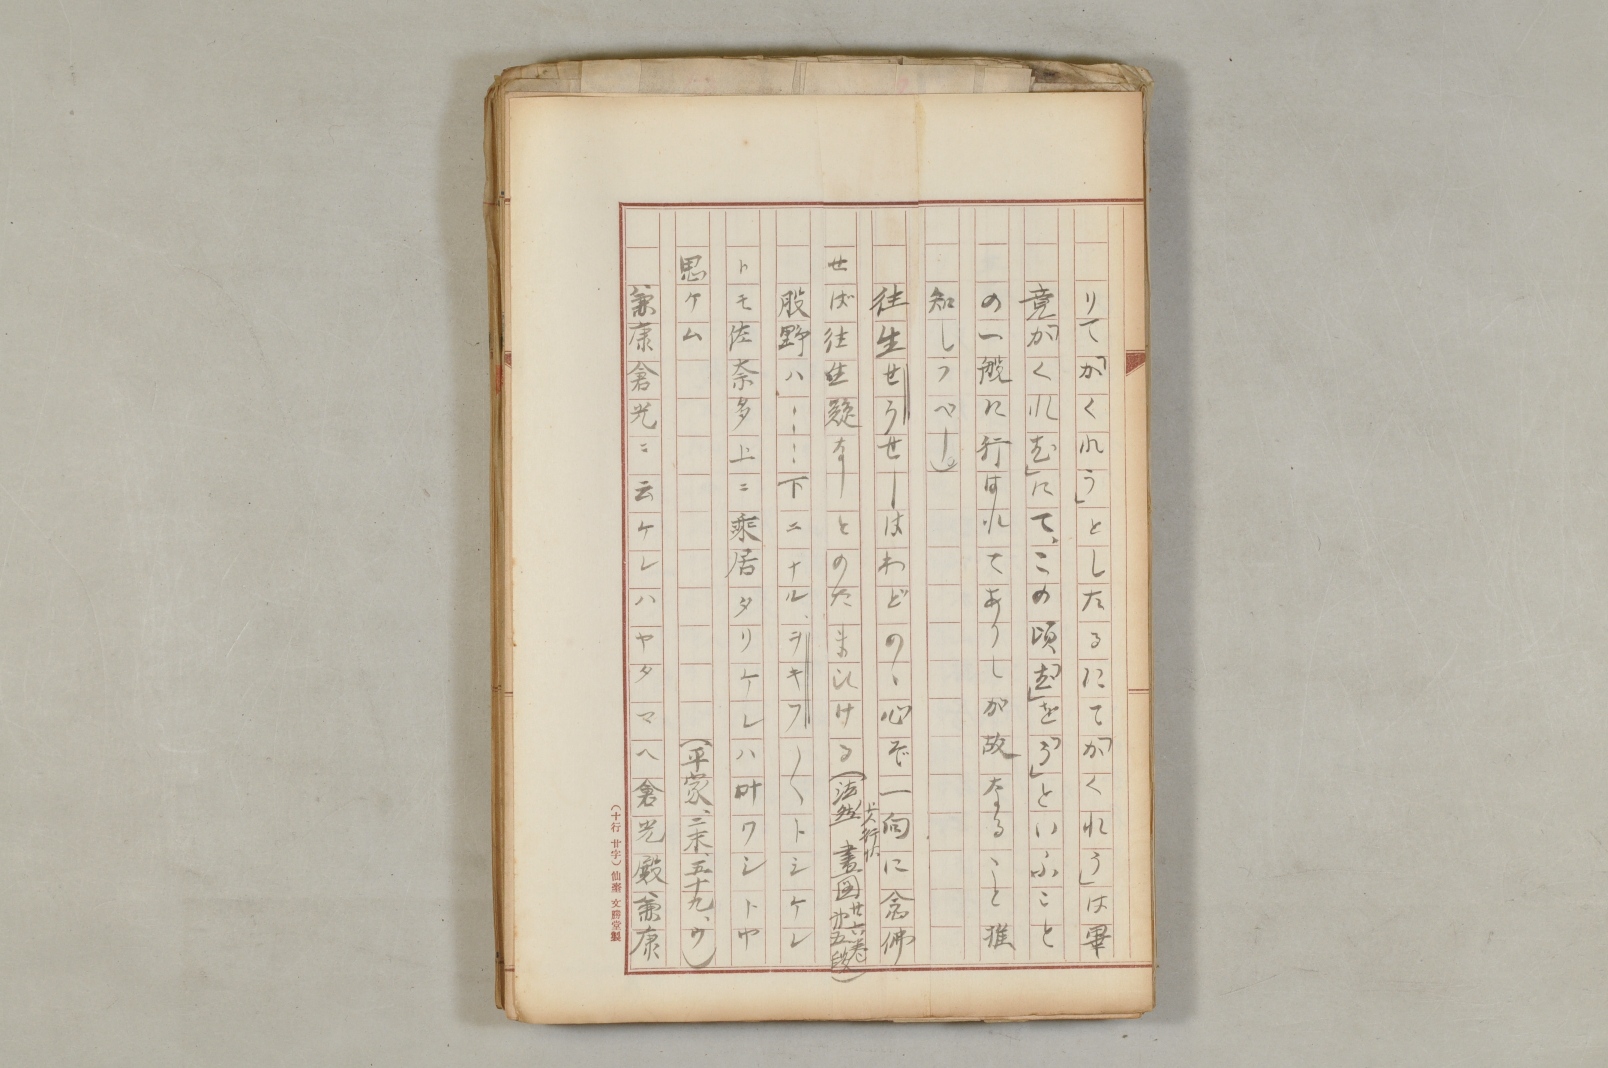 りて「かくれう」としたるにて「かくれう」は畢
竟「かくれむ」にて、この頃「む」を「う」といふこと
の一般に行はれてありしが故なること推
知しうべし。
往生せうせーはわどのゝ心ぞ一向に念佛
せば往生疑なしとのたまひける(法然上人行状畫図廿六巻第五段)
股野ハ、……下ニナル、ヲキフ〱トシケレ
トモ佐奈多上ニ乘居タリケレハ叶ワシトヤ
思ケム
(平家、二末、五十九、ウ)
兼康倉光ニ云ケレハヤタマヘ倉光殿兼康
(十行廿字)仙臺文勝堂製